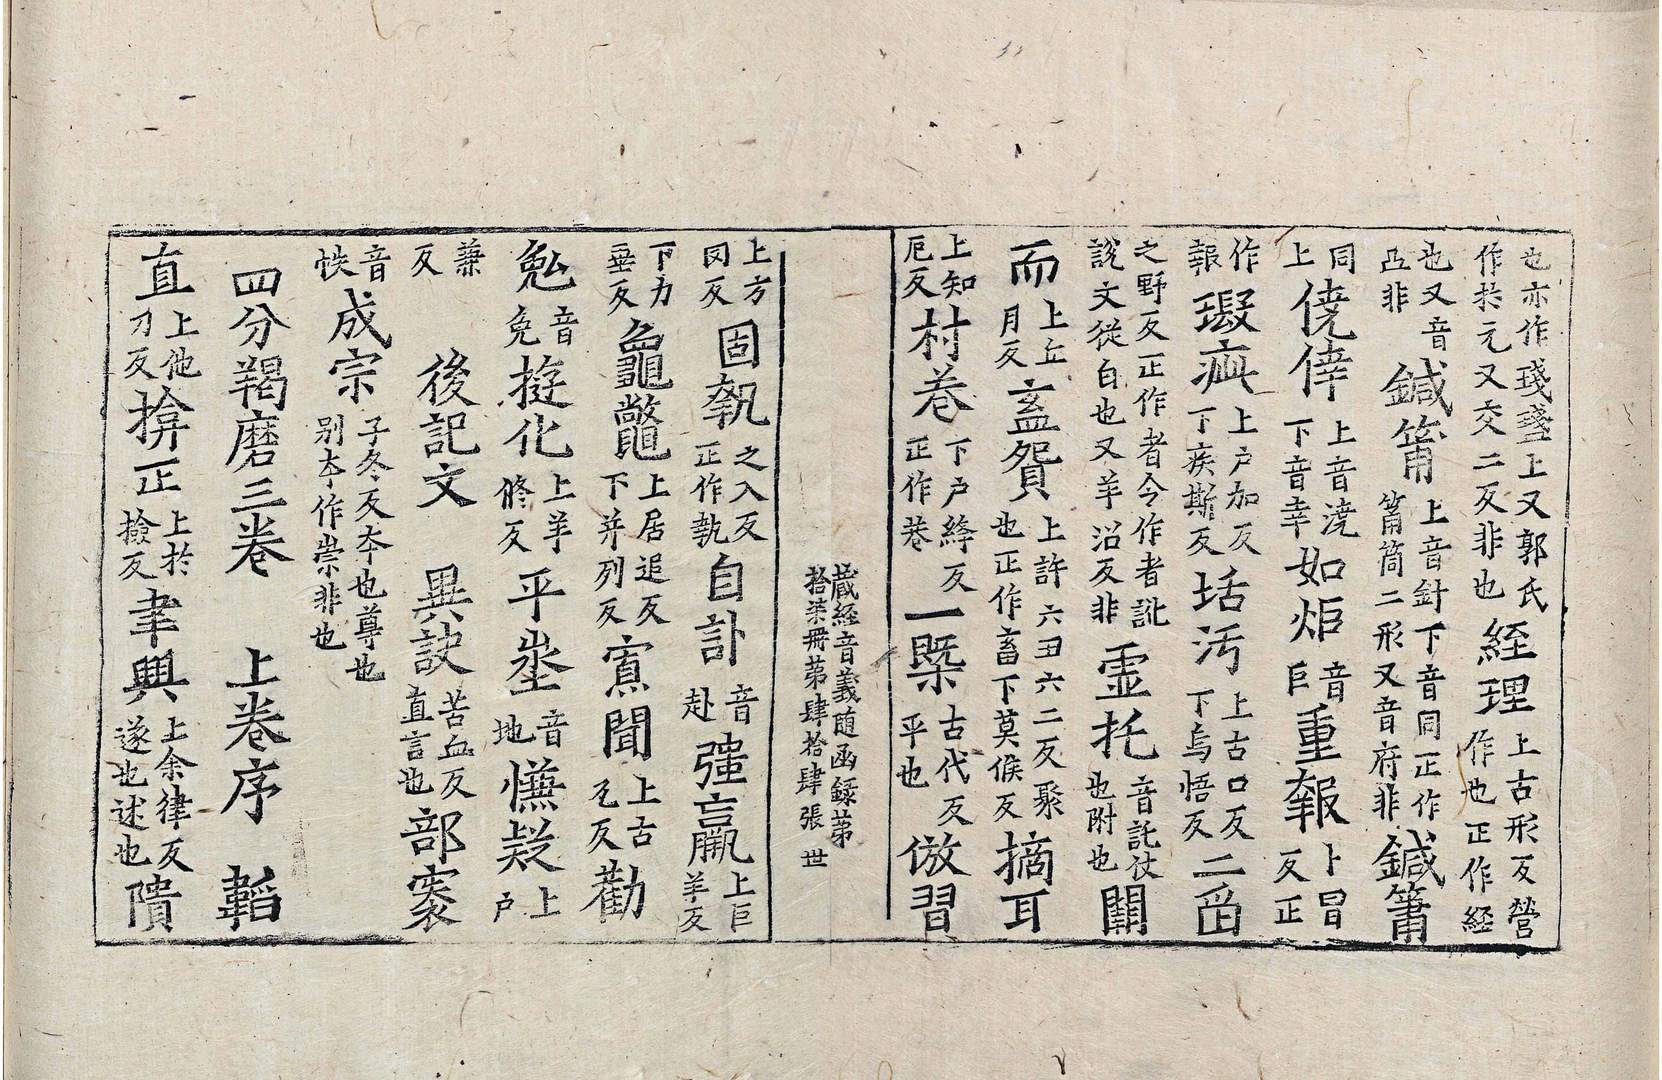 也亦作㻞盞上又郭氏作於元又交二反非也經理上古形反營作也正作経
也又音亞非鍼筩上音針下音同正作筩筒二形又音府非鍼筩
同上僥倖上音澆下音幸如炬音巨重報卜冒反正
作報瑕疵上戸加反下疾斯反垢汚上古口反下烏悟反二
之野反正作者今作者訛說文從自也又羊沼反非靈托音託仗也附也
而上丘月反盖貿上許六丑六二反聚也正作畜下莫候反摘耳
上知厄反村巷下戸絳反正作巷一槩古代反平也倣習
藏經音義随函録第拾柒冊第肆拾肆張 世
上方罔反固執之入反正作執自訃音赴強羸上巨羊反
下力垂反龜鼈上居追反下并列反寡聞上古瓦反勸
勉音免挻化上羊脩反平埊音地憮疑上戸
蒹反 後記文 異訣苦血反直言也部袠
音帙成宗子冬反夲也尊也別夲作崇非也
四分羯磨三卷 上卷序 韜
直上他刀反揜正上於撿反聿興上余律反遂也述也隤